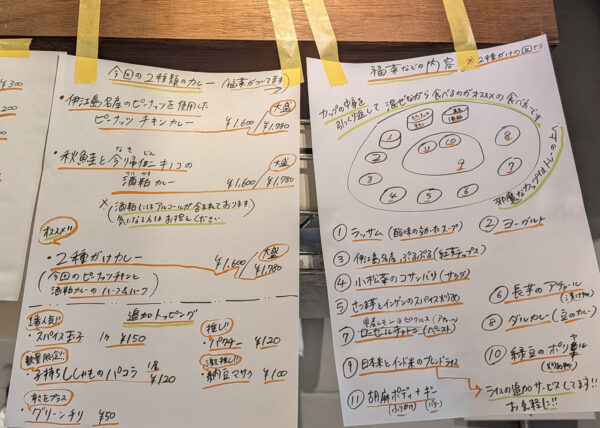 ¥300
今回の2種類のカレー (福菜がついてます)
・伊江島名産のピーナッツを使用した
ピーナッツ チキンカレー ¥1,600 / 大盛 ¥1,980
・秋鮭と今帰仁キノコの
なきじん
酒粕カレー ¥1,600 / 大盛 ¥1,980
※(酒粕にはアルコールが含まれております
気になる方はお控えください)
オススメ!!
・2種がけカレー ¥1,600 / 大盛 ¥1,980
(今回のピーナッツチキンと
酒粕カレーのハーフ&ハーフ)
追加トッピング
1番人気!!
・スパイス玉子 1ケ ¥150
数量限定!!
・子持ちししゃものパコラ 1尾 ¥120
彩をプラス
・グリーンチリ ¥50
推し!!
・パクチー ¥120
激推し!!
・納豆マサラ ¥100
福菜などの内容 ※2種がけの図です
カップの中身を
引っくり返して 混ぜながら食べるのがオススメの食べ方です
邪魔なカップはトレーの上へ
① ラッサム (酸味のあるスープ)
② ヨーグルト
③ 伊江島名産 ぷるぷる (紅芋チップス)
④ 小松菜のコサンバリ (サラダ)
⑤ さつま芋とインゲンのスパイス炒め
⑥ 長芋のアチャール
(漬け物)
⑦ ローゼルチャトニ (ペースト)
⑧ ダルカレー (豆のカレー)
⑨ 日本米とインド米のブレンドライス
⑩ 緑豆のポリヤル
⑪ 胡麻ポディ+ギー
(ふりかけ) (バター)
ライスの追加サービスしてます!!
お気軽に!!